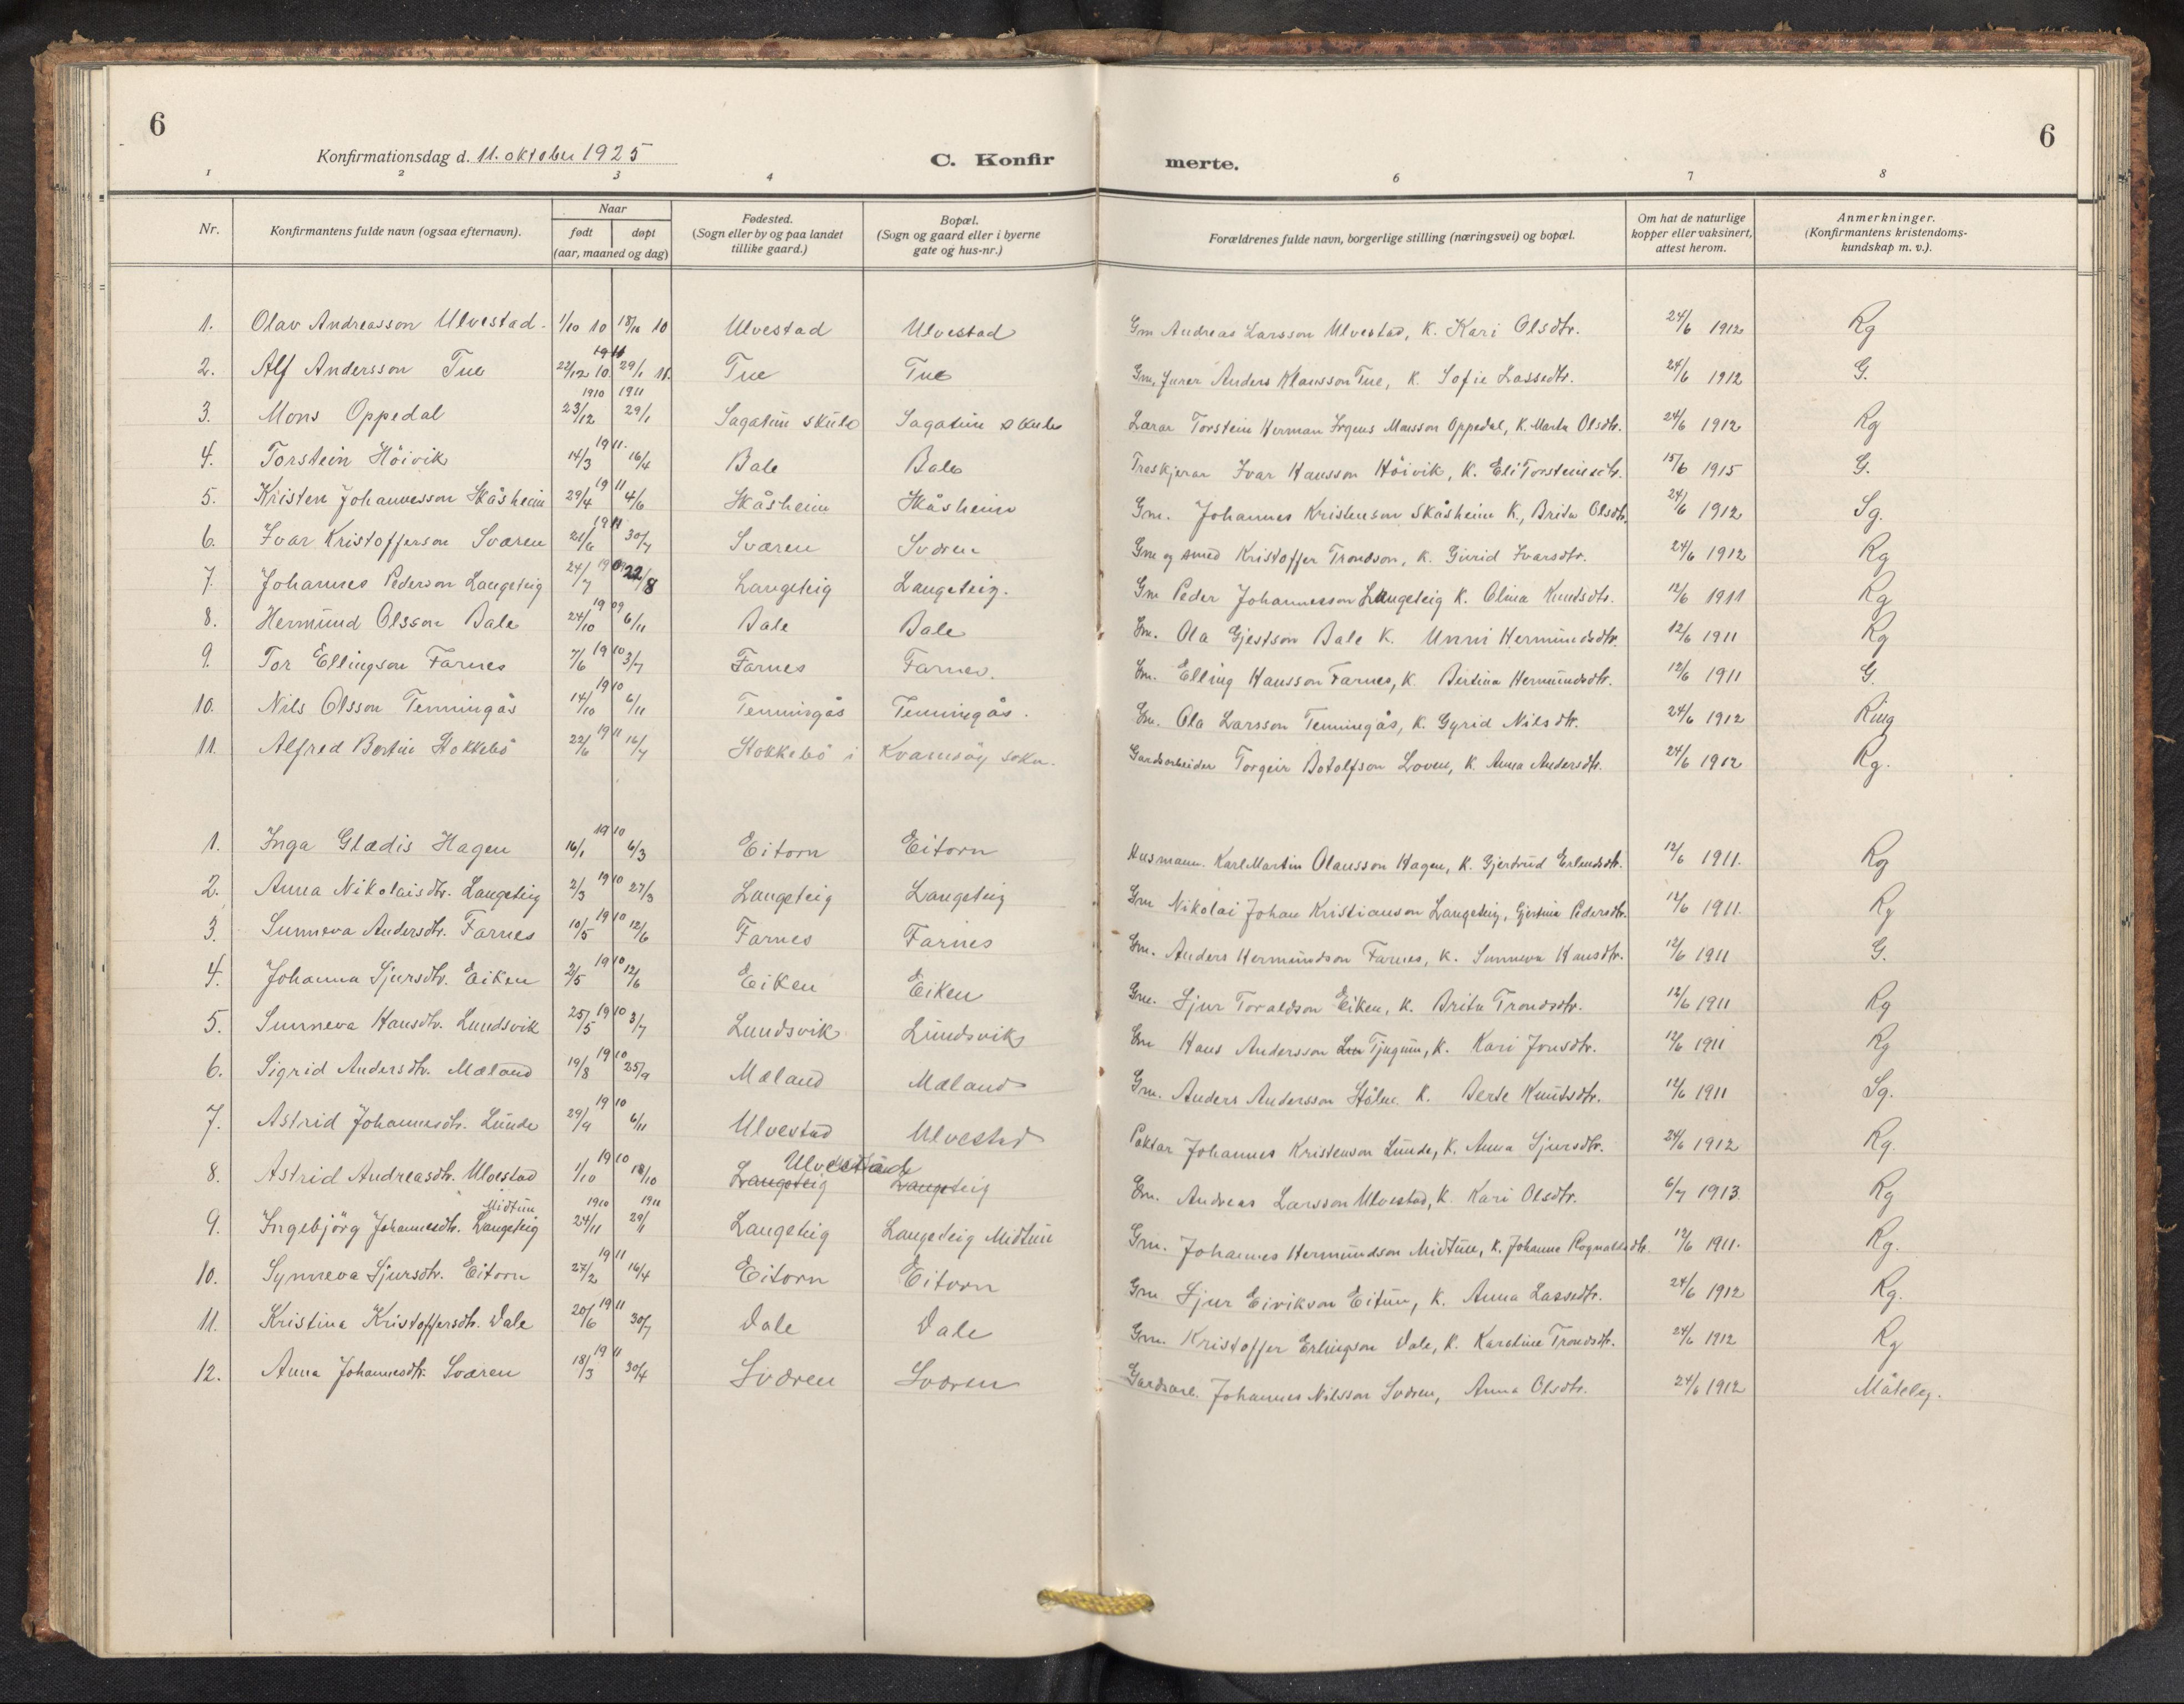 6
Konfirmationsdag d. 11. oktober 1925
C. Konfir merte.
6
1 2 3 4 6 7 8
Nr. Konfirmantens fulde navn (ogsaa efternavn). Naar født døpt (aar, maaned og dag) Fødested. (Sogn eller by og paa landet tillike gaard.) Bopæl. (Sogn og gaard eller i byerne gate og hus-nr.) Forældrenes fulde navn, borgerlige stilling (næringsvei) og bopæl. Om hat de naturlige kopper eller vaksinert, attest herom. Anmerkninger. (Konfirmantens kristendoms-kundskap m. v.).
1. Olav Andreasson Ulvestad. 1/10 10 18/10 10 Ulvestad Ulvestad Gm Andreas Larsson Ulvestad, K. Kari Olsdtr. 24/6 1912 Rg
2. Alf Andersson Tue 22/12 10 1911 29/1 11. Tue Tue Gm, Anders Klausson Tue, K. Sofie Lassedtr. 24/6 1912 G.
3. Mons Oppedal 1910 23/12 1911 29/1 Sagatun skule Sagatun skule Lærar Torstein Herman Monsson Oppedal, K. Marta Olsdtr. 24/6 1912 Rg
4. Torstein Höivik 14/3 1911. 16/4 Bale Bale Treskjerar Ivar Hansson Höivik, K. Eli Torsteinsdtr. 15/6 1915 G.
5. Kristen Johannesson Skåsheim 29/4 1911 4/6 Skåsheim Skåsheim Gm. Johannes Kristenson Skåsheim K., Brita Olsdtr. 24/6 1912 Sg.
6. Ivar Kristofferson Sværen 21/6 1911 30/7 Sværen Sværen Gm og smed Kristoffer Trondson, K. Gurid Ivarsdtr. 24/6 1912 Rg
7. Johannes Pederson Langeteig 24/7 1909 22/8 Langeteig Langeteig. Gm Peder Johannesson Langeteig K. Olina Knutsdtr. 12/6 1911 Rg
8. Hermund Olsson Bale 24/10 1909 6/11 Bale Bale Gm. Ola Gjestson Bale K. Unni Hermundsdtr. 12/6 1911 Rg
9. Tor Ellingson Farnes 7/6 1910 3/7 Farnes Farnes. Gm. Elling Hansson Farnes, K. Bertina Hermundsdtr. 12/6 1911 G.
10. Nils Olsson Tenningås 14/10 1910 6/11 Tenningås Tenningås. Gm. Ola Larsson Tenningås, K. Gyrid Nilsdtr. 24/6 1912 Ring
11. Alfred Bertin Stokkebö 22/6 1911 16/7 Stokkebö i Kvamsöy sokn. Gardsarbeider Torgeir Botolfson Loven, K. Anna Andersdtr. 24/6 1912 Rg.
1. Inga Glædis Hagen 16/1 1910 6/3 Eitorn Eitorn Husmann. Karl Martin Olausson Hagen, K. Gjertrud Erlendsdtr. 12/6 1911. Rg
2. Anna Nikolaisdtr. Langeteig 2/3 1910 27/3 Langeteig Langeteig Gm Nikolai Johan Kristianson Langeteig, Gjertina Pedersdtr. 12/6 1911. Rg
3. Sunneva Andersdtr. Farnes 10/5 1910 12/6 Farnes Farnes Gm. Anders Hermundson Farnes, K. Sunneva Hansdtr. 12/6 1911 G.
4. Johanna Sjursdtr. Eiken 2/5 1910 12/6 Eiken Eiken Gm. Sjur Toraldson Eiken, K. Brita Trondsdtr. 12/6 1911 Rg
5. Sunneva Hansdtr. Lundsvik 25/5 1910 3/7 Lundsvik Lundsvik Gm Hans Andersson Lun Tjugum, K. Kari Jonsdtr. 12/6 1911 Rg
6. Sigrid Andersdtr. Mæland 19/8 1910 25/9 Mæland Mæland Gm. Anders Andersson K. Berte Knutsdtr. 12/6 1911 Sg.
7. Astrid Johannesdtr. Lunde 29/9 1910 6/11 Ulvestad Ulvestad Paktar Johannes Kristenson Lunde, K. Anna Sjursdtr. 24/6 1912 Rg.
8. Astrid Andreasdtr. Ulvestad 1/10 1910 18/10 Ulvestad Langeteig Langeteig Gm. Andreas Larsson Ulvestad, K. Kari Olsdtr. 6/7 1913 Rg
9. Ingebjörg Johannesdtr. Midtun Langeteig 1910 24/11 1911 29/1 Langeteig Langeteig Midtun Gm. Johannes Hermundson Midtun, K. Johanna Rognaldsdtr. 12/6 1911. Rg.
10. Synneva Sjursdtr. Eitorn 27/2 1911 16/4 Eitorn Eitorn Gm. Sjur Eirikson Eitun, K. Anna Lassedtr. 24/6 1912 Rg.
11. Kristina Kristoffersdtr. Dale 20/6 1911 30/7 Dale Dale Gm. Kristoffer Erlingson Dale, K. Karoline Trondsdtr. 24/6 1912 Rg
12. Anna Johannesdtr. Sværen 18/3 1911 30/4 Sværen Sværen Gardsarb. Johannes Nilsson Sværen, Anna Olsdtr. 24/6 1912 Måteleg.